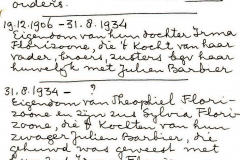 ouders.
19.12.1906 - 31.8.1934
Eigendom van hun dochter Irma
Florizoone, die 't kocht van haar
vader, broers, zusters bij haar
huwelijk met Julien Barbier
31.8.1934 - ?
Eigendom van Theophiel Flori-
zoone en zijn zus Sylvia Flori-
zoone, die 't kochten van hun
zwager Julien Barbier, die
gehuwd was geweest met